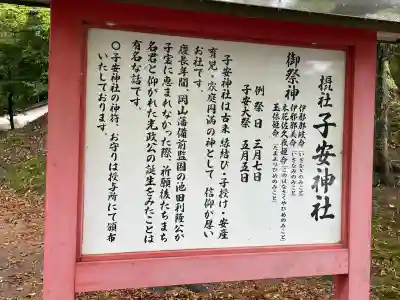 摂社 子安神社
御祭神
伊邪那岐命(いざなぎのみこと)
伊邪那美命(いざなみのみこと)
木花佐久夜姫命(このはなさくやひめのみこと)
玉依姫命(たまよりひめのみこと)
例祭日 三月七日
子安大祭 五月五日
子安神社は古来縁結び・子授け・安産
育児・家庭円満の神として、信仰が厚い
お社です。
慶長年間、岡山藩備前監国の池田利隆公が
子宝に恵まれなかった際、祈願後たちまち
名君と仰がれた光政公の誕生をみたことは
有名な話です。
○子安神社の神符、お守りは授与所にて頒布
いたしております。